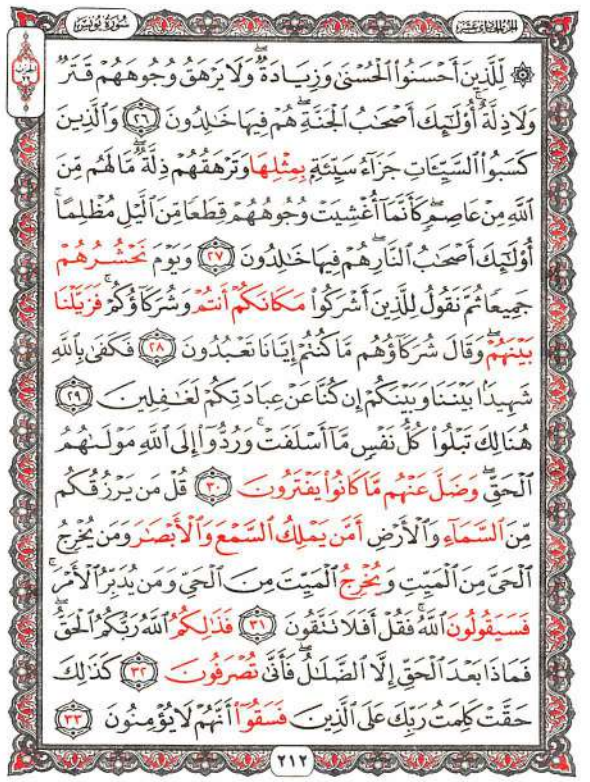 الجزء الحادي عشر
سورة يونس
۞ لِّلَّذِينَ أَحْسَنُوا۟ ٱلْحُسْنَىٰ وَزِيَادَةٌ ۖ وَلَا يَرْهَقُ وُجُوهَهُمْ قَتَرٌ
وَلَا ذِلَّةٌ ۚ أُو۟لَـٰٓئِكَ أَصْحَـٰبُ ٱلْجَنَّةِ ۖ هُمْ فِيهَا خَـٰلِدُونَ ٢٦ وَٱلَّذِينَ
كَسَبُوا۟ ٱلسَّيِّـَٔاتِ جَزَآءُ سَيِّئَةٍۭ بِمِثْلِهَا وَتَرْهَقُهُمْ ذِلَّةٌ ۖ مَّا لَهُم مِّنَ
ٱللَّهِ مِنْ عَاصِمٍ ۖ كَأَنَّمَآ أُغْشِيَتْ وُجُوهُهُمْ قِطَعًا مِّنَ ٱلَّيْلِ مُظْلِمًا ۚ
أُو۟لَـٰٓئِكَ أَصْحَـٰبُ ٱلنَّارِ ۖ هُمْ فِيهَا خَـٰلِدُونَ ٢٧ وَيَوْمَ نَحْشُرُهُمْ
جَمِيعًا ثُمَّ نَقُولُ لِلَّذِينَ أَشْرَكُوا۟ مَكَانَكُمْ أَنتُمْ وَشُرَكَآؤُكُمْ ۚ فَزَيَّلْنَا
بَيْنَهُمْ ۖ وَقَالَ شُرَكَآؤُهُم مَّا كُنتُمْ إِيَّانَا تَعْبُدُونَ ٢٨ فَكَفَىٰ بِٱللَّهِ
شَهِيدًۢا بَيْنَنَا وَبَيْنَكُمْ إِن كُنَّا عَنْ عِبَادَتِكُمْ لَغَـٰفِلِينَ ٢٩
هُنَالِكَ تَبْلُوا۟ كُلُّ نَفْسٍ مَّآ أَسْلَفَتْ ۚ وَرُدُّوٓا۟ إِلَى ٱللَّهِ مَوْلَىٰهُمُ
ٱلْحَقِّ ۖ وَضَلَّ عَنْهُم مَّا كَانُوا۟ يَفْتَرُونَ ٣٠ قُلْ مَن يَرْزُقُكُم
مِّنَ ٱلسَّمَآءِ وَٱلْأَرْضِ أَمَّن يَمْلِكُ ٱلسَّمْعَ وَٱلْأَبْصَـٰرَ وَمَن يُخْرِجُ
ٱلْحَىَّ مِنَ ٱلْمَيِّتِ وَيُخْرِجُ ٱلْمَيِّتَ مِنَ ٱلْحَىِّ وَمَن يُدَبِّرُ ٱلْأَمْرَ ۚ
فَسَيَقُولُونَ ٱللَّهُ ۚ فَقُلْ أَفَلَا تَتَّقُونَ ٣١ فَذَٰلِكُمُ ٱللَّهُ رَبُّكُمُ ٱلْحَقُّ ۖ
فَمَاذَا بَعْدَ ٱلْحَقِّ إِلَّا ٱلضَّلَـٰلُ ۖ فَأَنَّىٰ تُصْرَفُونَ ٣٢ كَذَٰلِكَ
حَقَّتْ كَلِمَتُ رَبِّكَ عَلَى ٱلَّذِينَ فَسَقُوٓا۟ أَنَّهُمْ لَا يُؤْمِنُونَ ٣٣
٢١٢